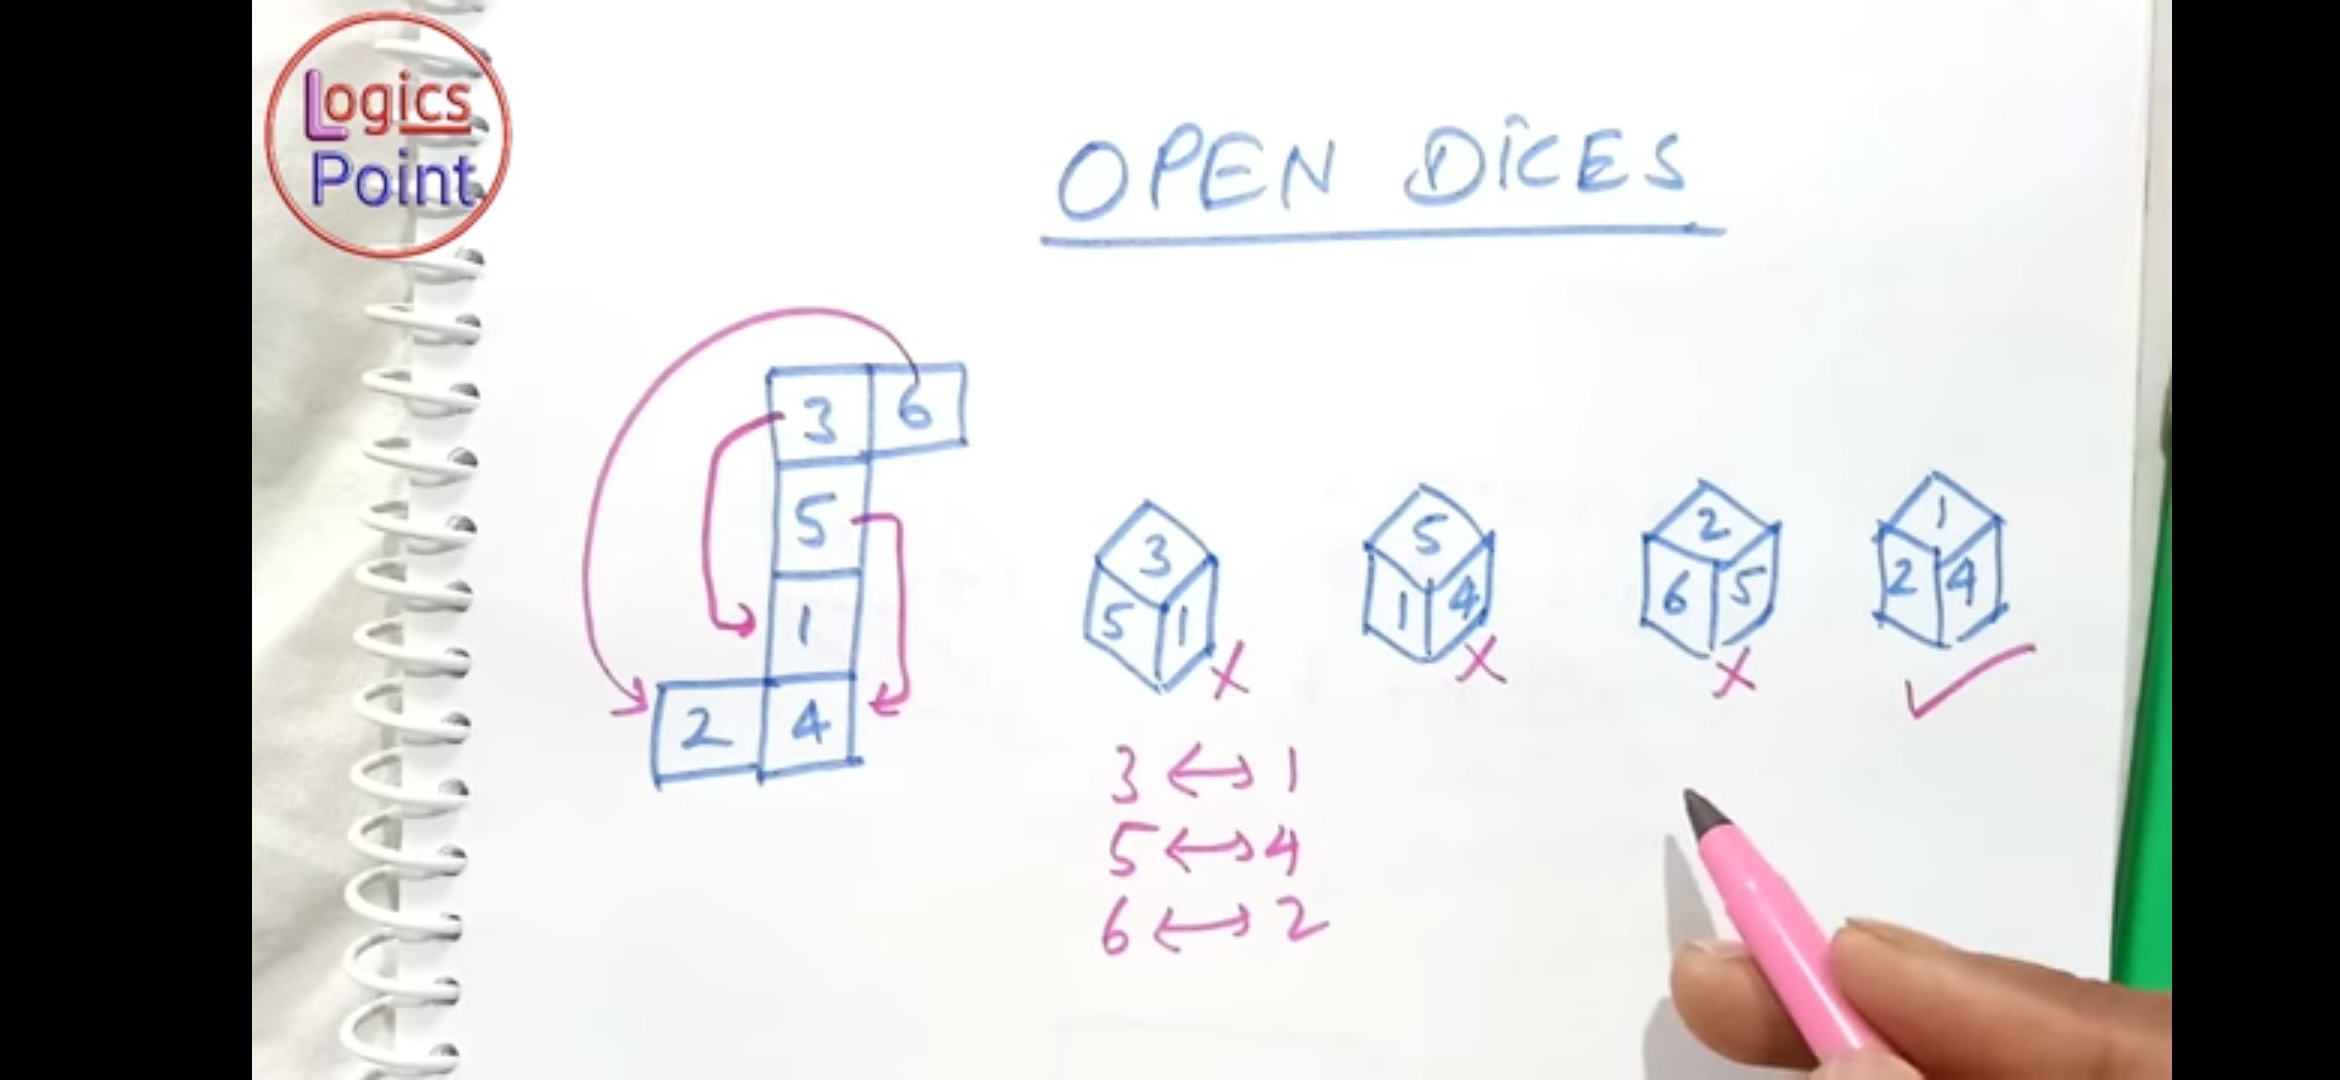 Logics
Point
OPEN DICES
3 6
5
1
2 4
3
5 1
X
5
1 4
X
2
6 5
X
1
2 4
✓
3 ↔ 1
5 ↔ 4
6 ↔ 2